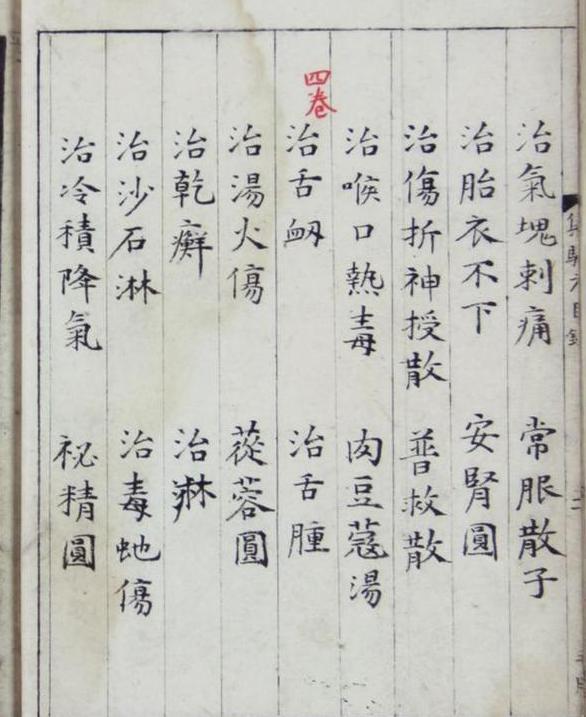 治氣塊刺痛　常服散子
治胎衣不下　安腎圓
治傷折神授散　普救散
治喉口熱毒　肉豆蔻湯
四卷
治舌衂　治舌腫
治湯火傷　蓯蓉圓
治乾癬　治痳
治沙石淋　治毒虵傷
治冷積降氣　祕精圓